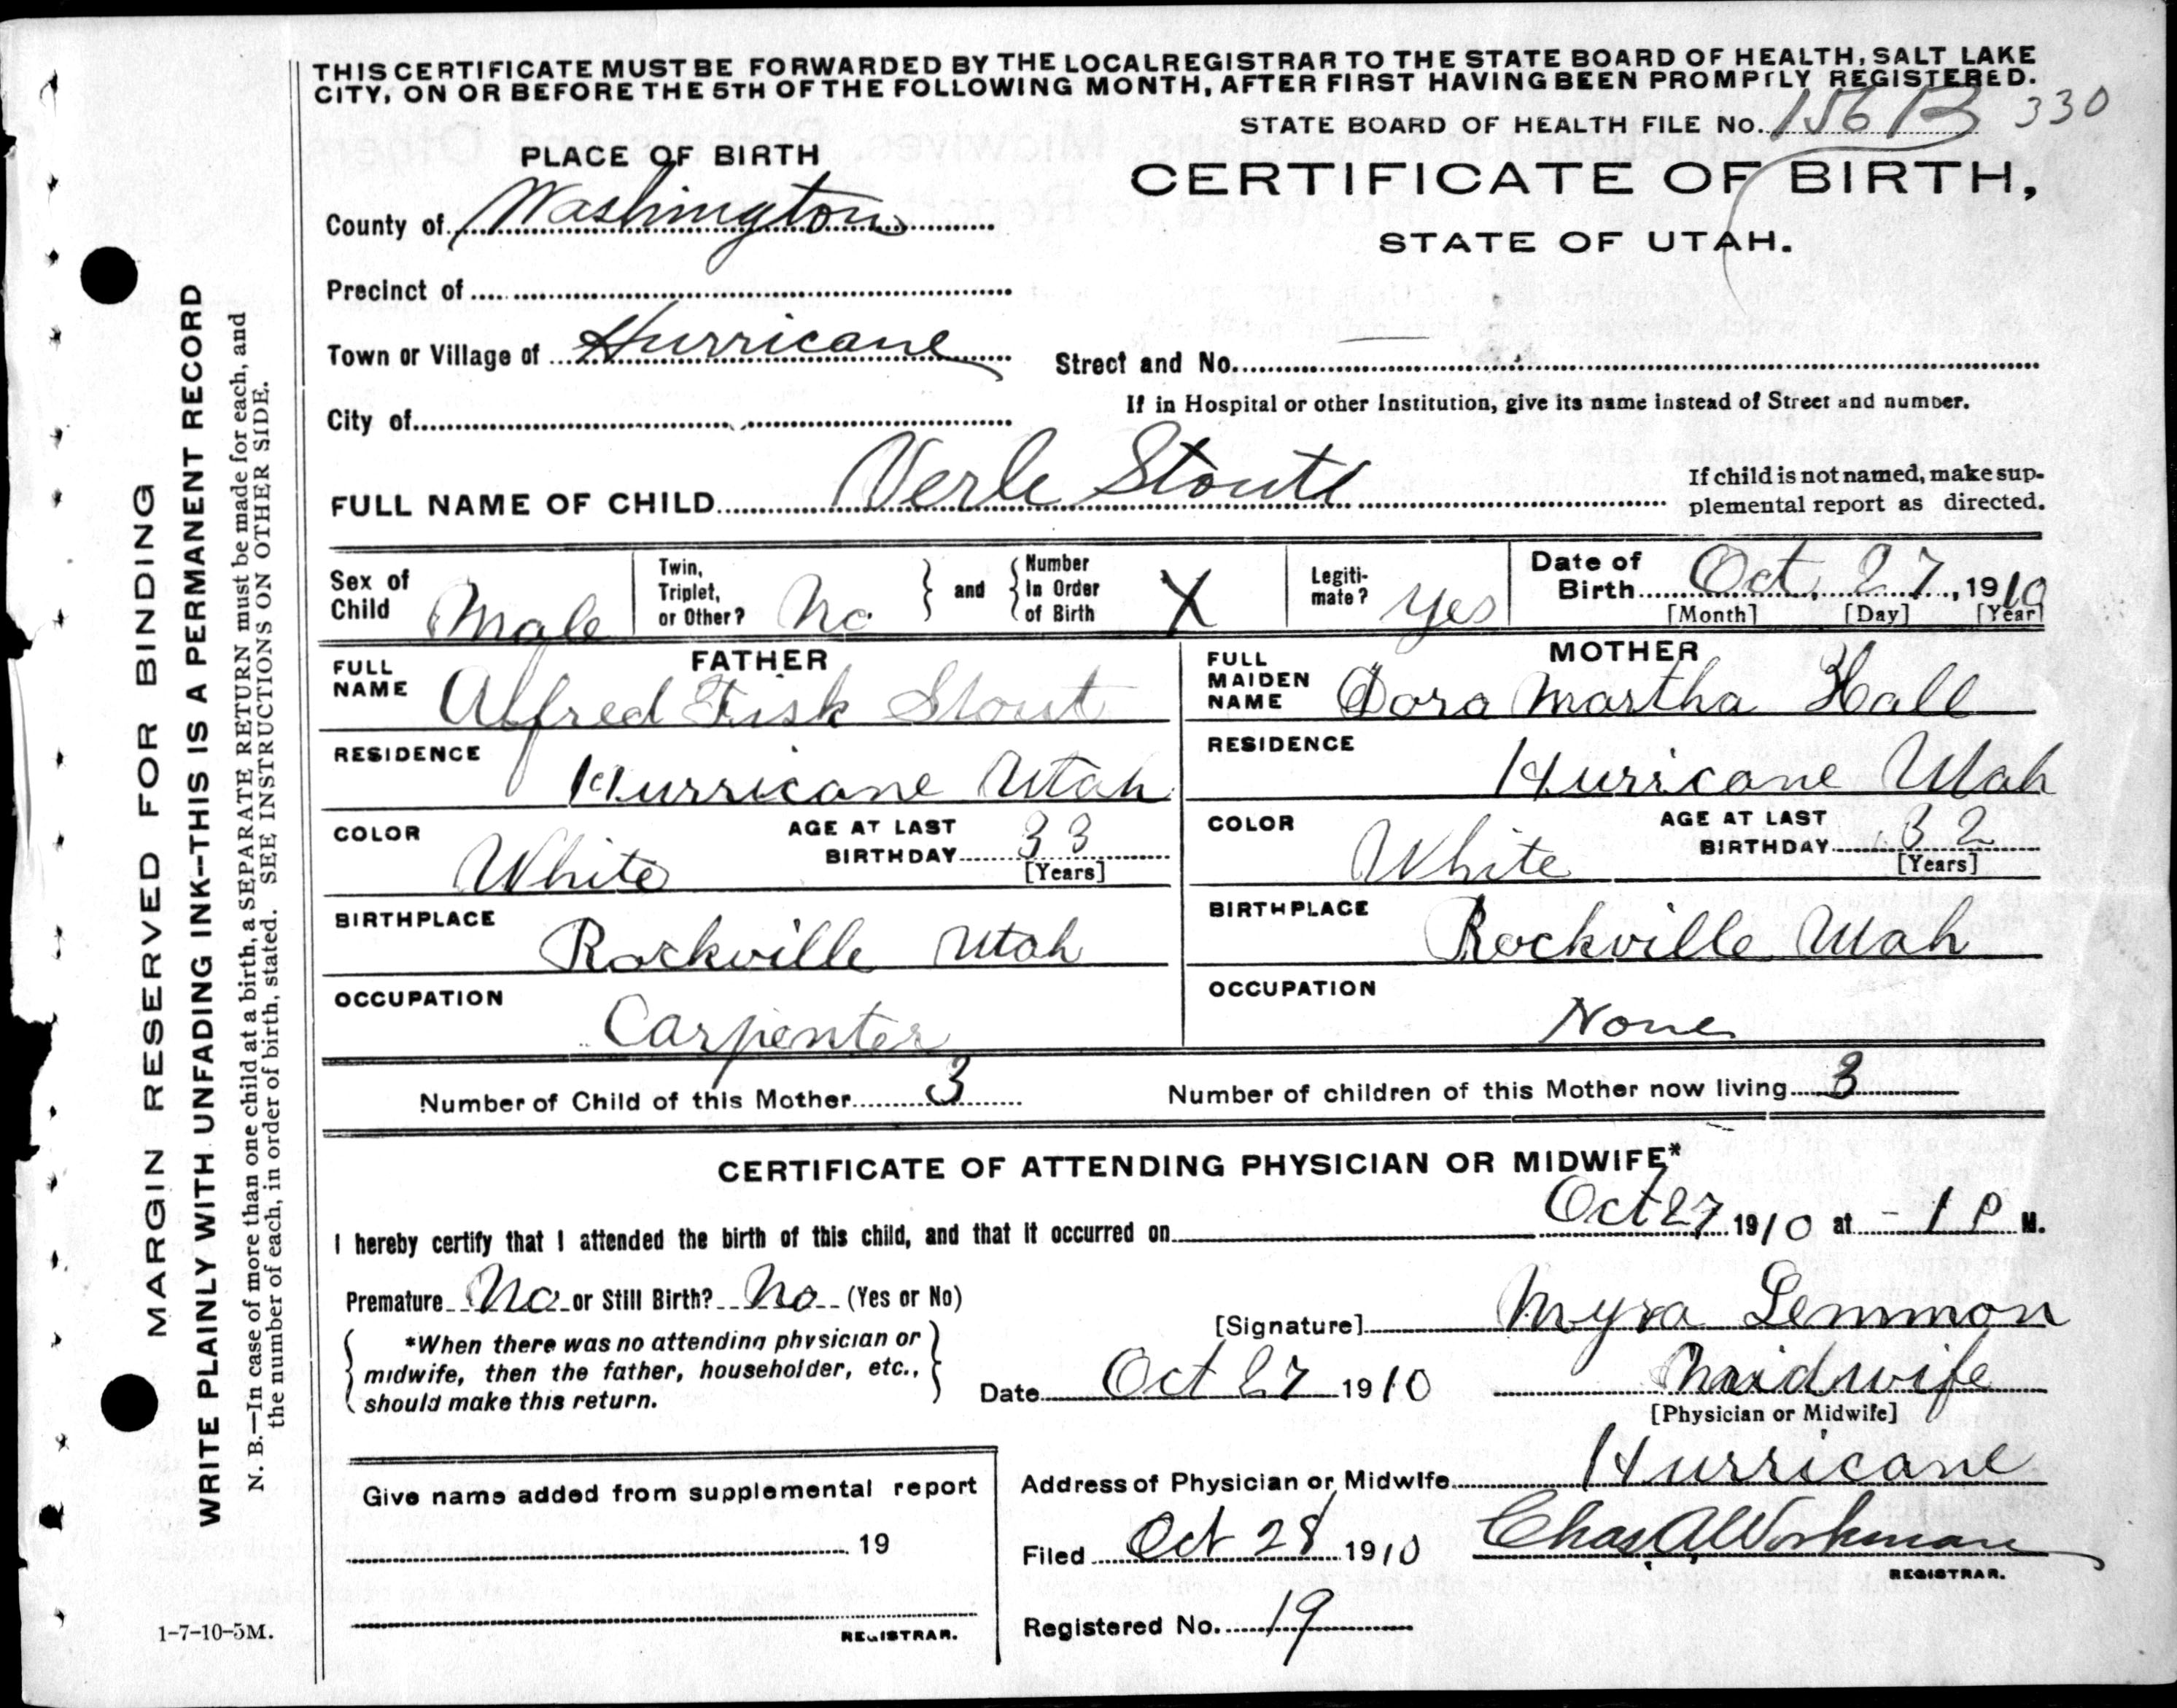 THIS CERTIFICATE MUST BE FORWARDED BY THE LOCAL REGISTRAR TO THE STATE BOARD OF HEALTH, SALT LAKE
CITY, ON OR BEFORE THE 5TH OF THE FOLLOWING MONTH, AFTER FIRST HAVING BEEN PROMPTLY REGISTERED.
STATE BOARD OF HEALTH FILE No. 156 B 330
PLACE OF BIRTH
CERTIFICATE OF BIRTH,
STATE OF UTAH.
County of Washington
Precinct of
Town or Village of Hurricane
Street and No.
If in Hospital or other Institution, give its name instead of Street and number.
City of
FULL NAME OF CHILD Verle Stout
If child is not named, make sup-
plemental report as directed.
Sex of Child Male
Twin, Triplet, or Other? No
and Number In Order of Birth X
Legiti-mate? Yes
Date of Birth Oct. 27, 1910
[Month] [Day] [Year]
FATHER
FULL NAME Alfred Fisk Stout
RESIDENCE Hurricane Utah
COLOR White
AGE AT LAST BIRTHDAY 33
[Years]
BIRTHPLACE Rockville Utah
OCCUPATION Carpenter
MOTHER
FULL MAIDEN NAME Dora Martha Hall
RESIDENCE Hurricane Utah
COLOR White
AGE AT LAST BIRTHDAY 32
[Years]
BIRTHPLACE Rockville Utah
OCCUPATION None
Number of Child of this Mother 3
Number of children of this Mother now living 3
CERTIFICATE OF ATTENDING PHYSICIAN OR MIDWIFE*
I hereby certify that I attended the birth of this child, and that it occurred on Oct 27 1910 at - 1 P M.
Premature No or Still Birth? No (Yes or No)
*When there was no attending physician or
midwife, then the father, householder, etc.,
should make this return.
[Signature] Myra Lemmon
Date Oct 27 1910 Midwife
[Physician or Midwife]
Address of Physician or Midwife Hurricane
Filed Oct 28 1910 Chas A Workman
REGISTRAR.
Registered No. 19
Give name added from supplemental report
19
REGISTRAR.
1-7-10-5M.
MARGIN RESERVED FOR BINDING
WRITE PLAINLY WITH UNFADING INK--THIS IS A PERMANENT RECORD
N. B.—In case of more than one child at a birth, a SEPARATE RETURN must be made for each, and
the number of each, in order of birth, stated. SEE INSTRUCTIONS ON OTHER SIDE.